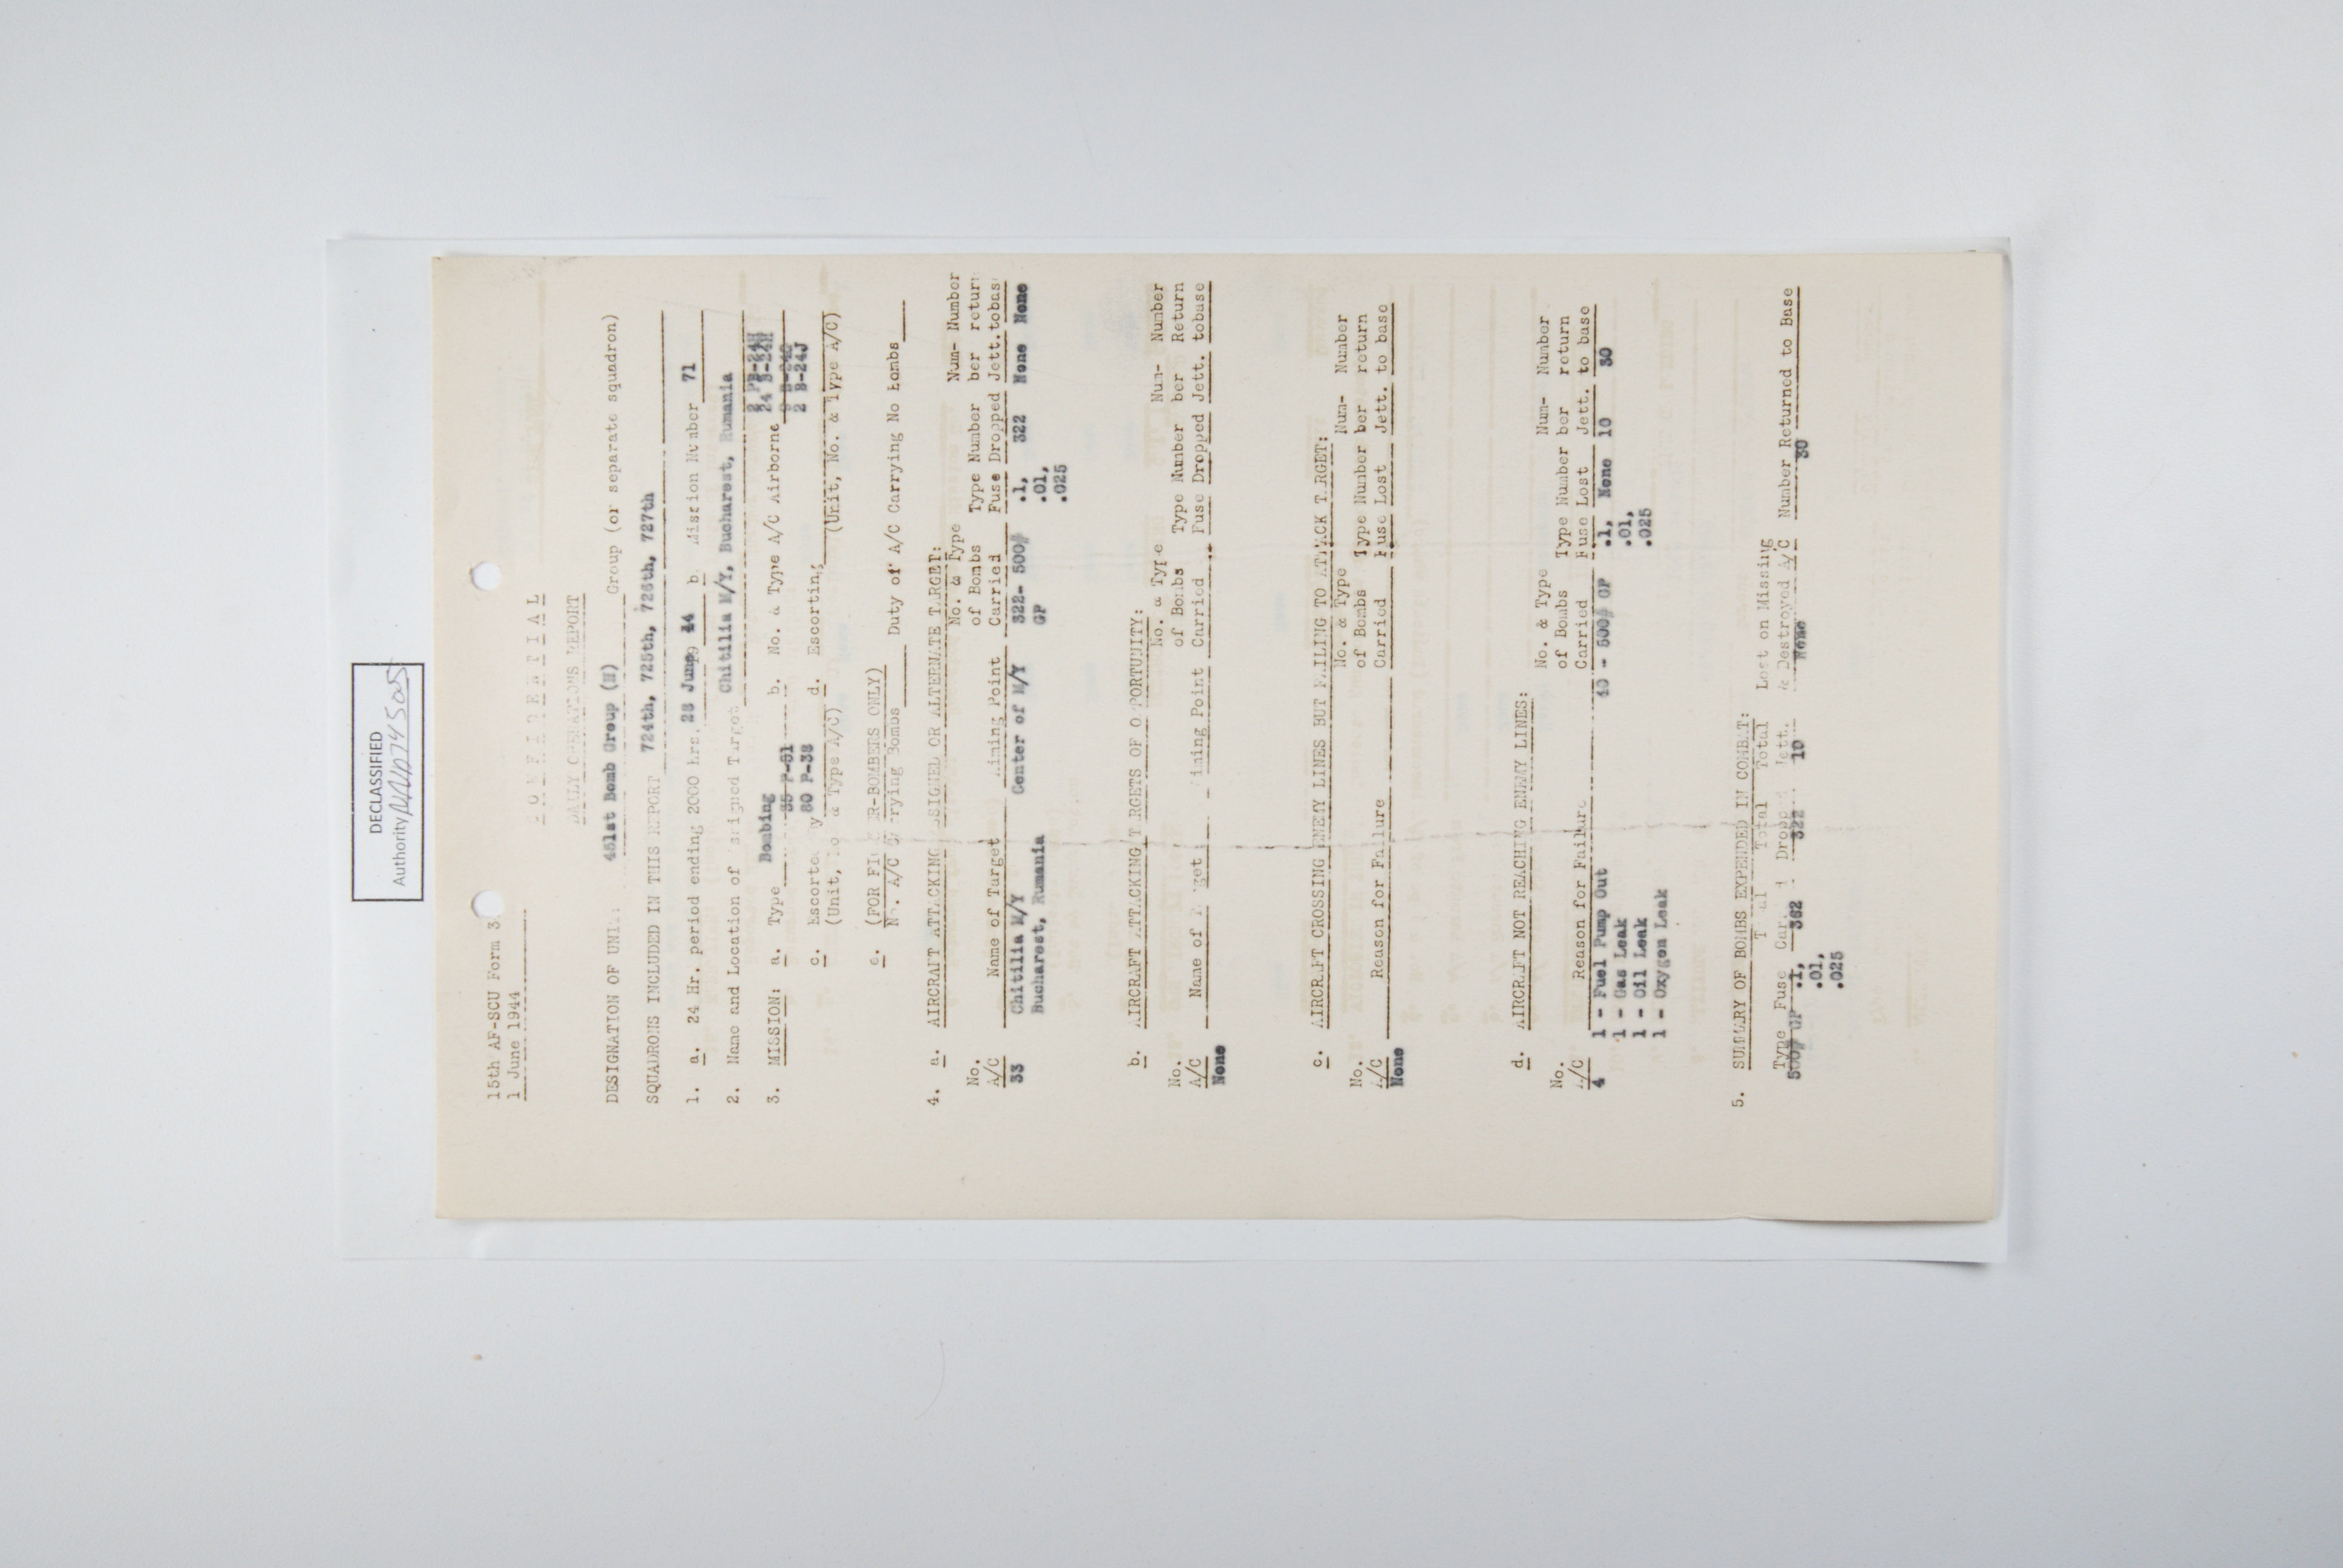 DECLASSIFIED
Authority NND745005
15th AF-SCU Form 3
1 June 1944
CONFIDENTIAL
DAILY OPERATIONS REPORT
DESIGNATION OF UNIT: 451st Bomb Group (H) Group (or separate squadron)
SQUADRONS INCLUDED IN THIS REPORT 724th, 725th, 726th, 727th
1. a. 24 Hr. period ending 2000 hrs. 28 June 19 44 b. Mission Number 71
2. Name and Location of Assigned Target Chitilia M/Y, Bucharest, Rumania
2 PB-24H
24 B-24H
3. MISSION: a. Type Bombing b. No. & Type A/C Airborne
35 P-51 2 B-24J
c. Escorted by 80 P-38 d. Escorting
(Unit, No & Type A/C) (Unit, No. & Type A/C)
e. (FOR FIGHTER-BOMBERS ONLY)
No. A/C Carrying Bombs Duty of A/C Carrying No Bombs
4. a. AIRCRAFT ATTACKING ASSIGNED OR ALTERNATE TARGET:
No. & Type Num- Number
No. of Bombs Type Number ber return
A/C Name of Target Aiming Point Carried Fuse Dropped Jett. tobas
33 Chitilia M/Y Center of M/Y 322- 500# .1, 322 None None
Bucharest, Rumania GP .01,
.025
b. AIRCRAFT ATTACKING TARGETS OF OPPORTUNITY:
No. & Type Num- Number
No. of Bombs Type Number ber Return
A/C Name of Target Aiming Point Carried Fuse Dropped Jett. tobase
None
c. AIRCRAFT CROSSING ENEMY LINES BUT FAILING TO ATTACK TARGET:
No. & Type Num- Number
No. of Bombs Type Number ber return
A/C Reason for Failure Carried Fuse Lost Jett. to base
None
d. AIRCRAFT NOT REACHING ENEMY LINES:
No. & Type Num- Number
No. of Bombs Type Number ber return
A/C Reason for Failure Carried Fuse Lost Jett. to base
4 1 - Fuel Pump Out 40 - 500# GP .1, None 10 30
1 - Gas Leak .01,
1 - Oil Leak .025
1 - Oxygen Leak
5. SUMMARY OF BOMBS EXPENDED IN COMBAT:
Total Total Total Lost on Missing
Type Fuse Carried Dropped Jett. & Destroyed A/C Number Returned to Base
500# GP .1, 362 322 10 None 30
.01,
.025